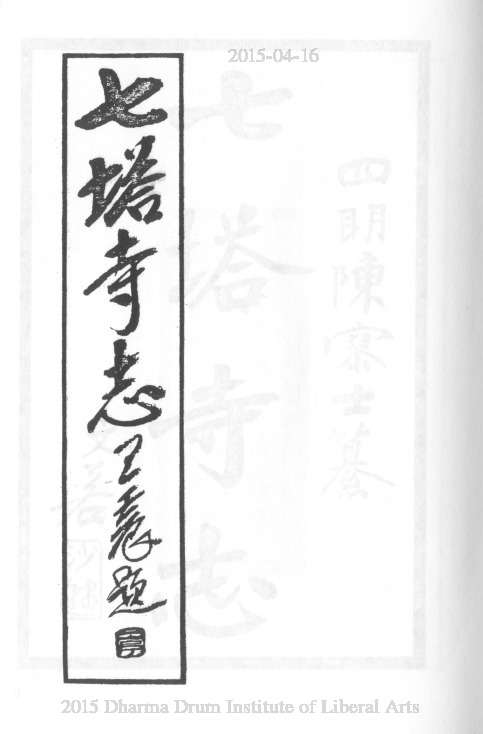 2015-04-16
四明陳寥士纂
七塔寺志
七塔寺志
王震題
2015 Dharma Drum Institute of Liberal Arts